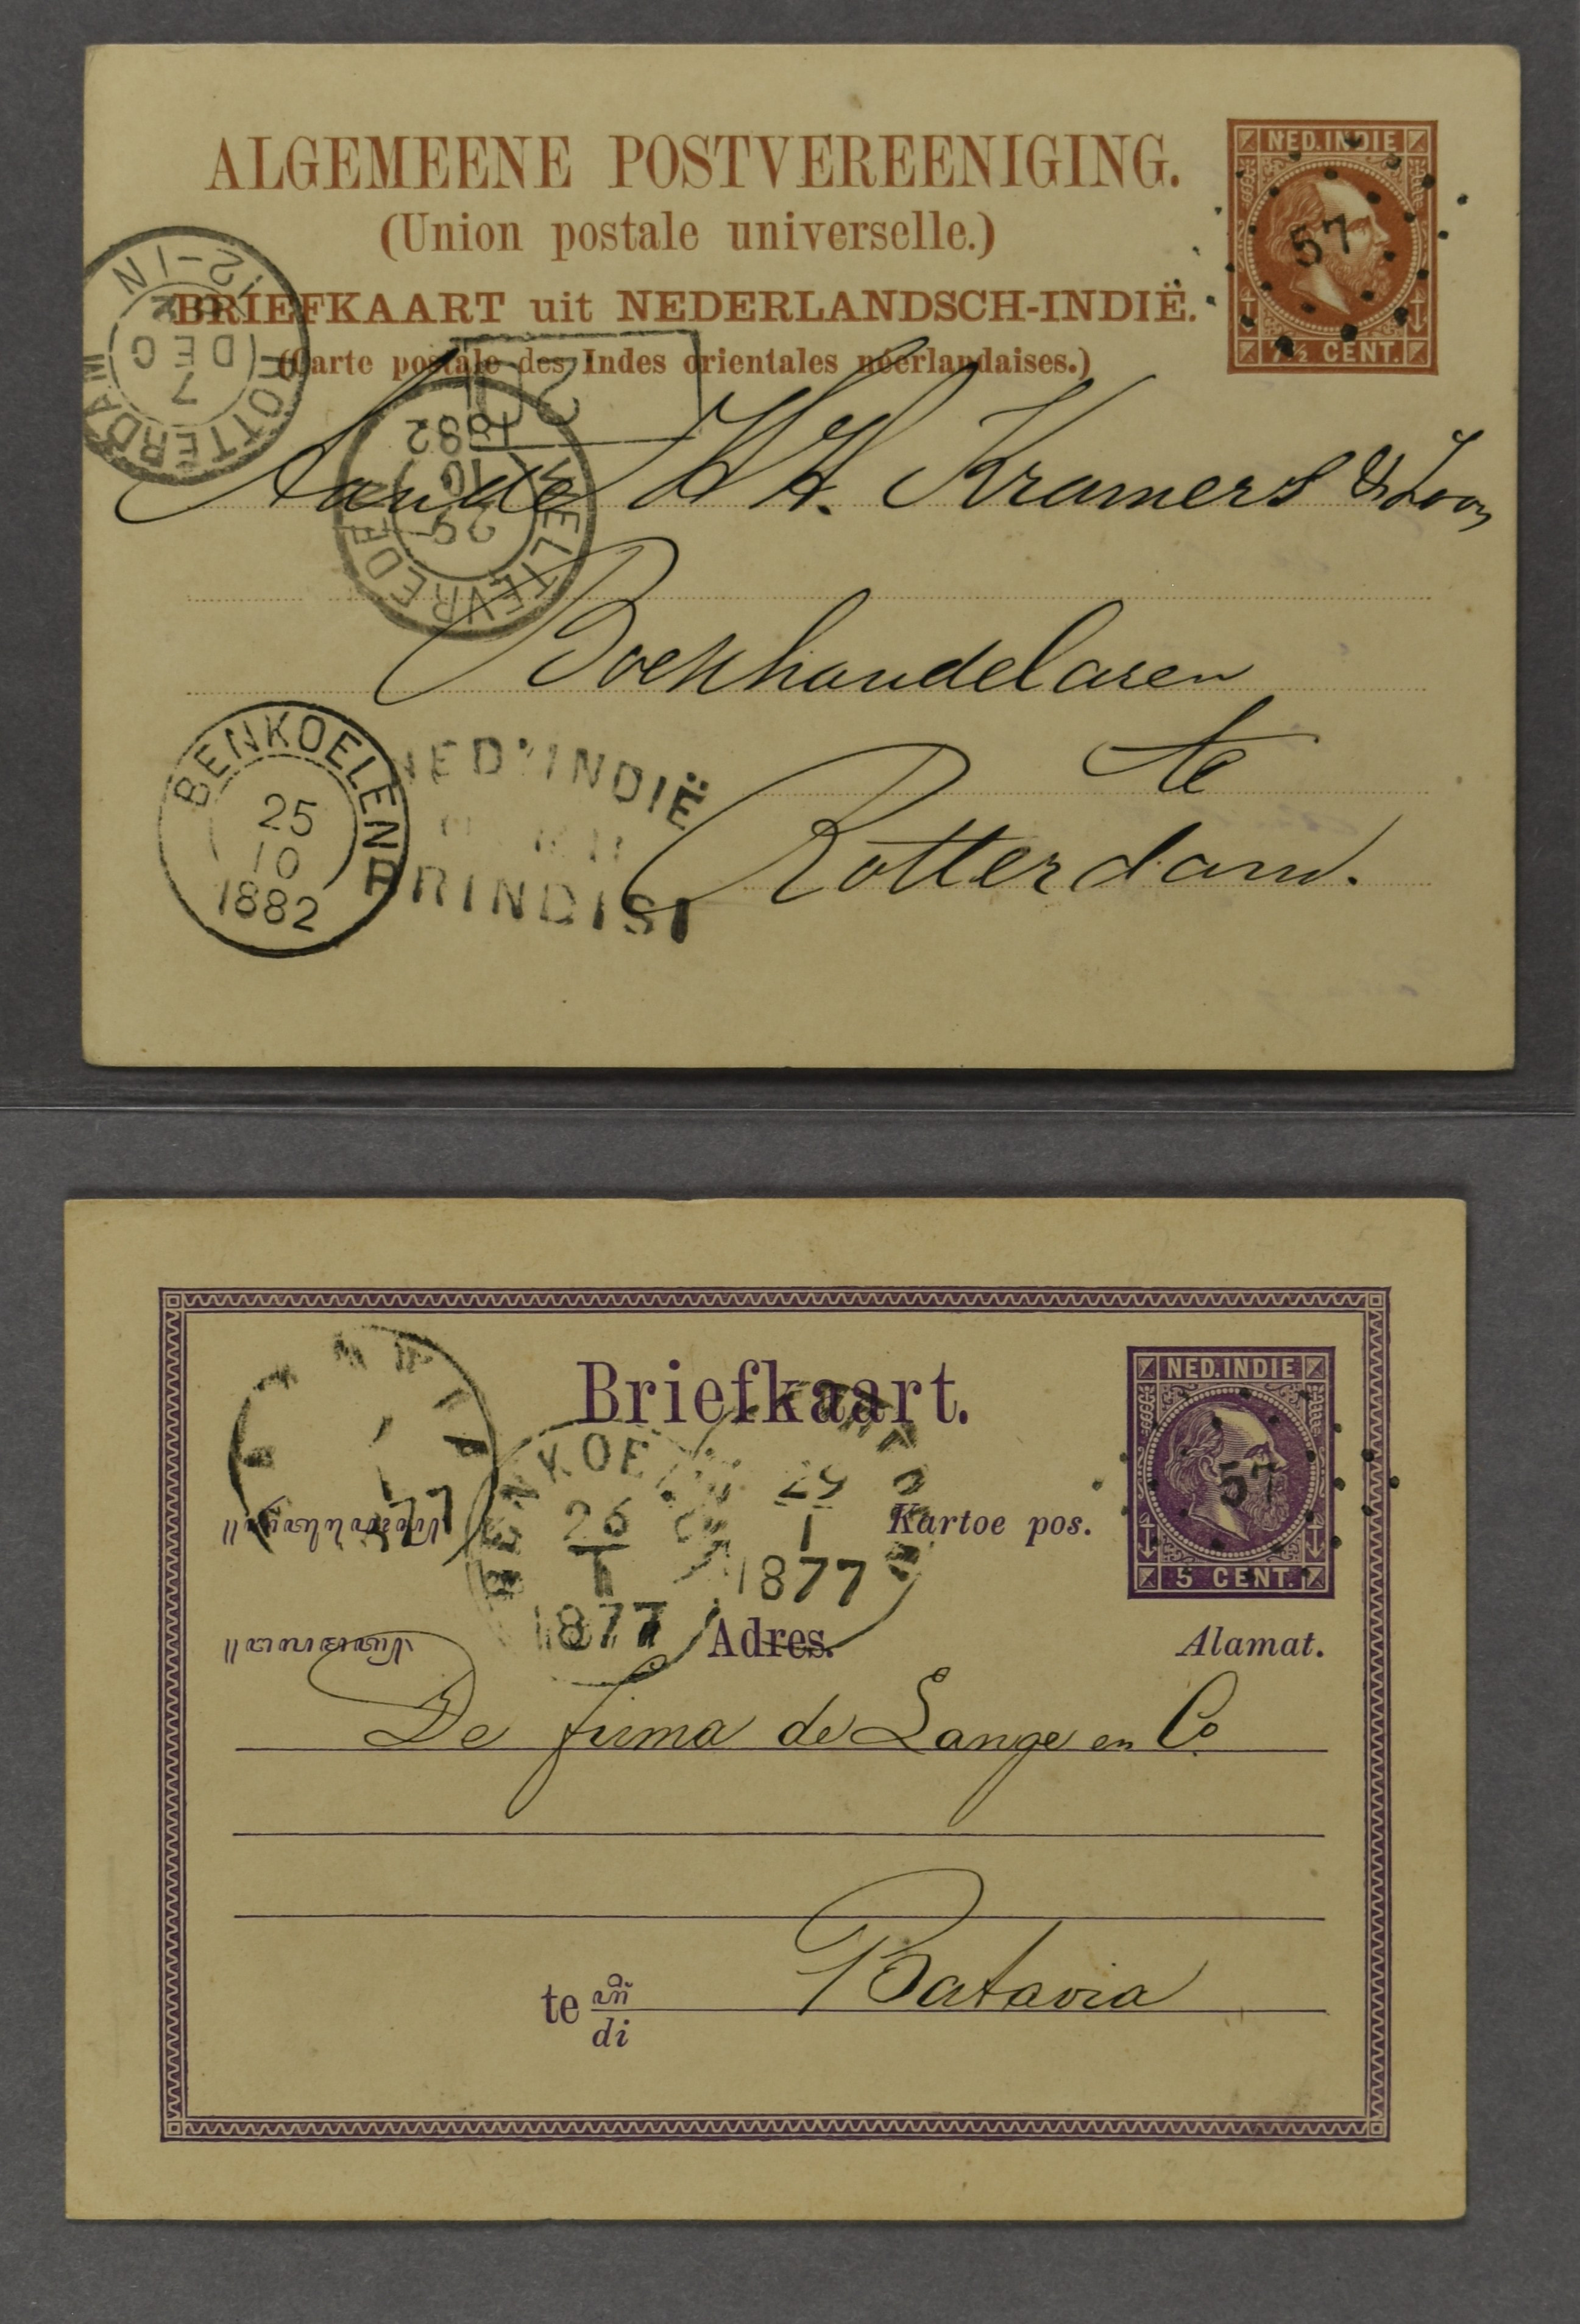 ALGEMEENE POSTVEREENIGING.
(Union postale universelle.)
BRIEFKAART uit NEDERLANDSCH-INDIË.
(Carte postale des Indes orientales néerlandaises.)
NED.INDIE
57
7½ CENT.
ROTTERDAM
7
DEC
82
12-1N
WELTEVREDE
29
10
1882
Aan de HH. Kramers & Zoon
Boekhandelaren
te
Rotterdam.
BENKOELEN
25
10
1882
NED. INDIË
BRINDISI
Briefkaart.
NED.INDIE
57
5 CENT.
Kartoe pos.
Adres.
Alamat.
BENKOELEN
26
1
1877
29
1
1877
1
77
De firma de Lange en Co.
te
di
Batavia